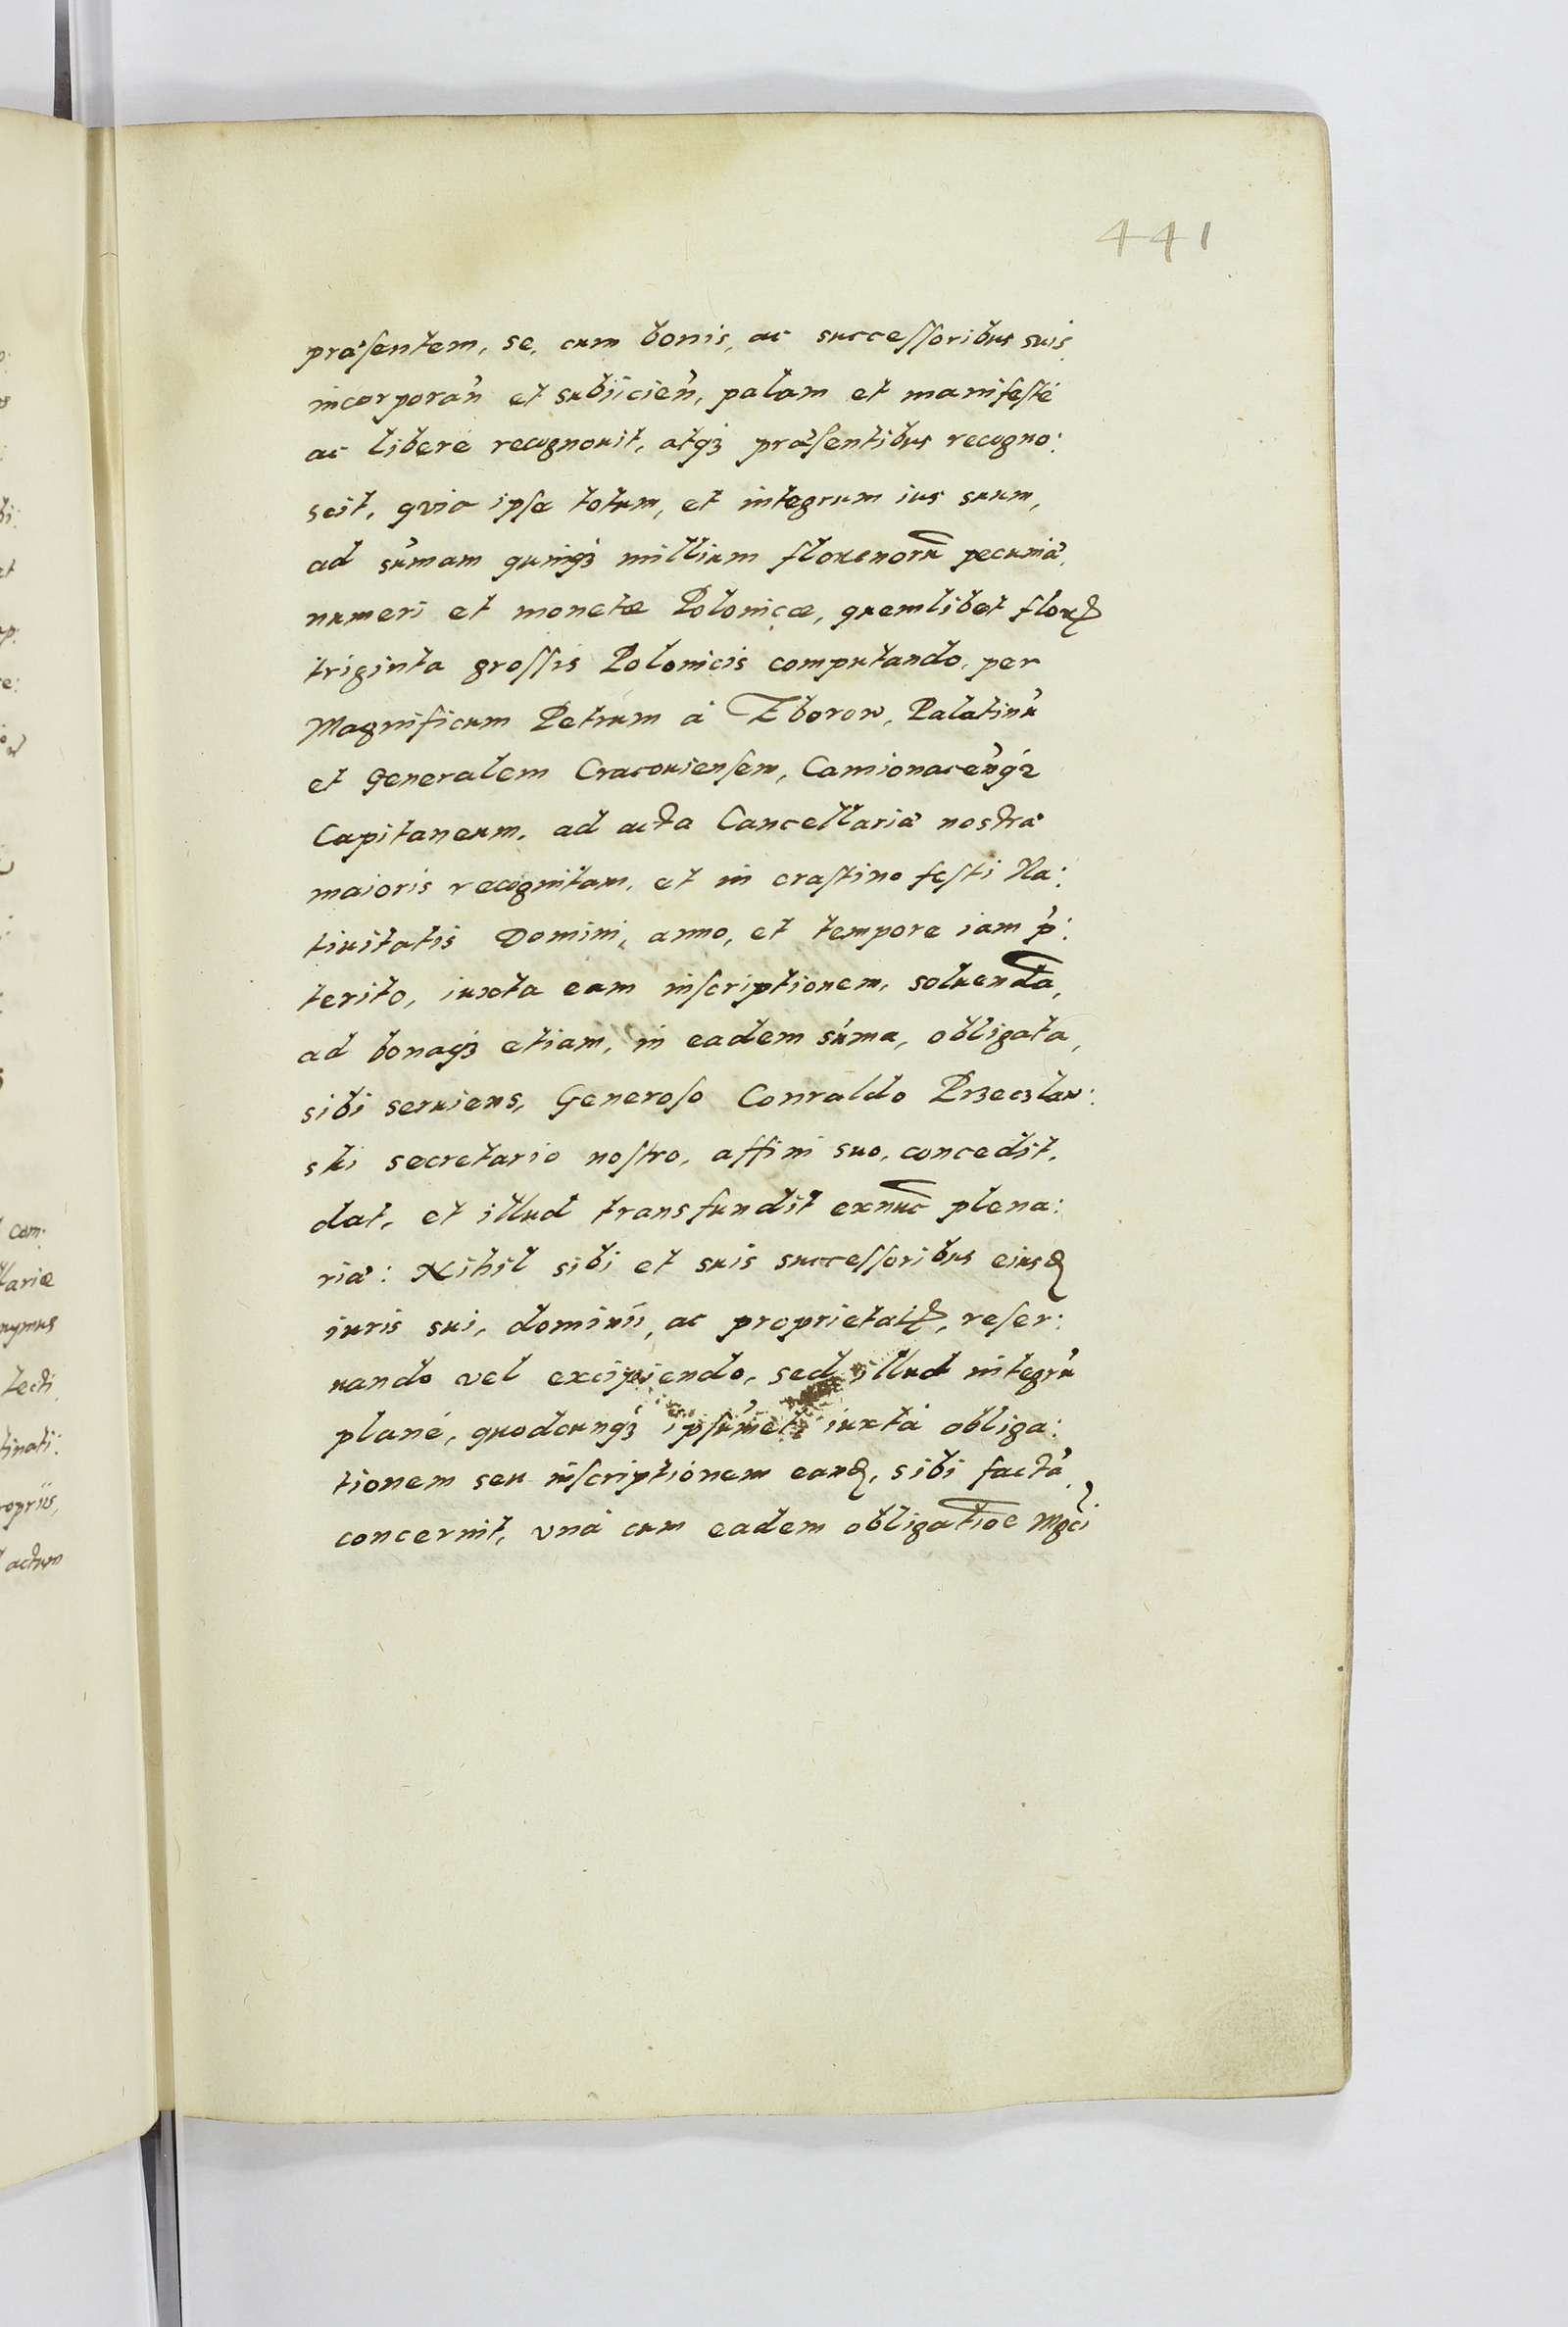 441
præsentem, se, cum bonis, ac successoribus suis
incorporań et subiicień, palam et manifesté
ac liberé recognouit, atq3 præsentibus recogno:
scit, qvia ipsa totum, et integrum ius suum,
ad sum̄am quinq3 millium florenorū pecuniæ,
numeri et monetæ Polonicæ, quemlibet florꝭ
triginta grossis Polonicis computando, per
Magnificum Petrum á Zborow, Palatinū
et Generalem Cracouiensem, Camionaceńq3
Capitaneum, ad acta Cancellariæ nostræ
maioris recognitam, et in crastino festi Na:
tiuitatis Domini, anno, et tempore iam p̄:
terito, iuxta eam inscriptionem, soluendā,
ad bonaq3 etiam, in eadem sum̄a, obligata,
sibi seruiens, Generoso Conraldo Przeczlaw:
ski secretario nostro, affini suo, concedit,
dat, et illud transfundit exnuc̄ plena:
riæ: Nihil sibi et suis successoribus eiusꝭ
iuris sui, dominii, ac proprietatꝭ, reser:
uando vel excipiendo, sed illud integrū
plané, quodcunq3 ipsum̄et iuxtá obliga:
tionem seu inscriptionem eandꝭ, sibi factā,
concernit, vná cum eadem obligatiōe Mgci
Com:
llariæ
nymus
tecti
tinati:
ropriis,
actum